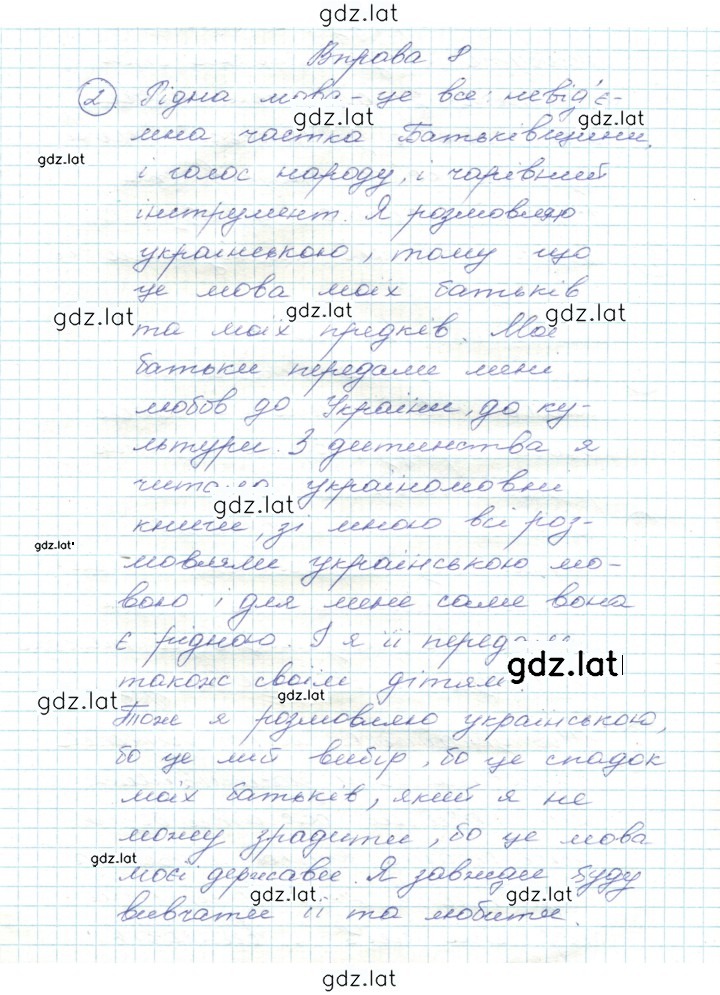 gdz.lat
Вправа 8
2 Рідна мова - це все: невід'є-
gdz.lat gdz.lat
мна частка Батьківщини,
gdz.lat
і голос народу, і чарівний
інструмент. Я розмовляю
українською, тому що
це мова моїх батьків
gdz.lat gdz.lat gdz.lat
та моїх предків. Мої
батьки передали мені
любов до України, до ку-
льтури. З дитинства я
україномовні
gdz.lat
книги, зі мною всі роз-
gdz.lat
мовляли українською мо-
вою і для мене саме вона
є рідною. І я її
gdz.lat
також своїм дітям.
gdz.lat gdz.lat
Тож я розмовляю українською,
бо це мій вибір, бо це спадок
моїх батьків, який я не
можу зрадити, бо це мова
gdz.lat
моєї держави. Я завжди буду
gdz.lat gdz.lat
вивчати її та любити.
gdz.lat